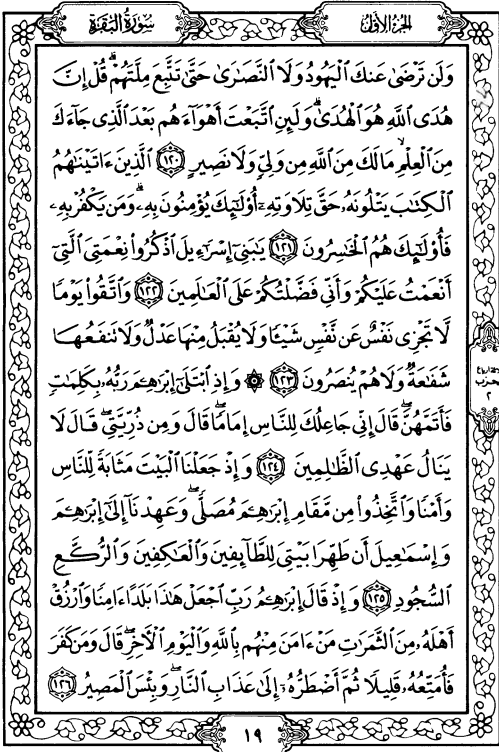 سُورَةُ البَقَرَةِ
الجُزءُ الأَوَّلُ
وَلَن تَرْضَىٰ عَنكَ ٱلْيَهُودُ وَلَا ٱلنَّصَٰرَىٰ حَتَّىٰ تَتَّبِعَ مِلَّتَهُمْ ۗ قُلْ إِنَّ
هُدَى ٱللَّهِ هُوَ ٱلْهُدَىٰ ۗ وَلَئِنِ ٱتَّبَعْتَ أَهْوَآءَهُم بَعْدَ ٱلَّذِى جَآءَكَ
مِنَ ٱلْعِلْمِ ۙ مَا لَكَ مِنَ ٱللَّهِ مِن وَلِىٍّ وَلَا نَصِيرٍ ١٢٠ ٱلَّذِينَ ءَاتَيْنَٰهُمُ
ٱلْكِتَٰبَ يَتْلُونَهُۥ حَقَّ تِلَاوَتِهِۦٓ أُو۟لَٰٓئِكَ يُؤْمِنُونَ بِهِۦ ۗ وَمَن يَكْفُرْ بِهِۦ
فَأُو۟لَٰٓئِكَ هُمُ ٱلْخَٰسِرُونَ ١٢١ يَٰبَنِىٓ إِسْرَٰٓءِيلَ ٱذْكُرُوا۟ نِعْمَتِىَ ٱلَّتِىٓ
أَنْعَمْتُ عَلَيْكُمْ وَأَنِّى فَضَّلْتُكُمْ عَلَى ٱلْعَٰلَمِينَ ١٢٢ وَٱتَّقُوا۟ يَوْمًا
لَّا تَجْزِى نَفْسٌ عَن نَّفْسٍ شَيْـًٔا وَلَا يُقْبَلُ مِنْهَا عَدْلٌ وَلَا تَنفَعُهَا
شَفَٰعَةٌ وَلَا هُمْ يُنصَرُونَ ١٢٣ ۞ وَإِذِ ٱبْتَلَىٰٓ إِبْرَٰهِـۧمَ رَبُّهُۥ بِكَلِمَٰتٍ
فَأَتَمَّهُنَّ ۖ قَالَ إِنِّى جَاعِلُكَ لِلنَّاسِ إِمَامًا ۖ قَالَ وَمِن ذُرِّيَّتِى ۖ قَالَ لَا
يَنَالُ عَهْدِى ٱلظَّٰلِمِينَ ١٢٤ وَإِذْ جَعَلْنَا ٱلْبَيْتَ مَثَابَةً لِّلنَّاسِ
وَأَمْنًا وَٱتَّخِذُوا۟ مِن مَّقَامِ إِبْرَٰهِـۧمَ مُصَلًّى ۖ وَعَهِدْنَآ إِلَىٰٓ إِبْرَٰهِـۧمَ
وَإِسْمَٰعِيلَ أَن طَهِّرَا بَيْتِىَ لِلطَّآئِفِينَ وَٱلْعَٰكِفِينَ وَٱلرُّكَّعِ
ٱلسُّجُودِ ١٢٥ وَإِذْ قَالَ إِبْرَٰهِـۧمُ رَبِّ ٱجْعَلْ هَٰذَا بَلَدًا ءَامِنًا وَٱرْزُقْ
أَهْلَهُۥ مِنَ ٱلثَّمَرَٰتِ مَنْ ءَامَنَ مِنْهُم بِٱللَّهِ وَٱلْيَوْمِ ٱلْءَاخِرِ ۖ قَالَ وَمَن كَفَرَ
فَأُمَتِّعُهُۥ قَلِيلًا ثُمَّ أَضْطَرُّهُۥٓ إِلَىٰ عَذَابِ ٱلنَّارِ ۖ وَبِئْسَ ٱلْمَصِيرُ ١٢٦
١٩